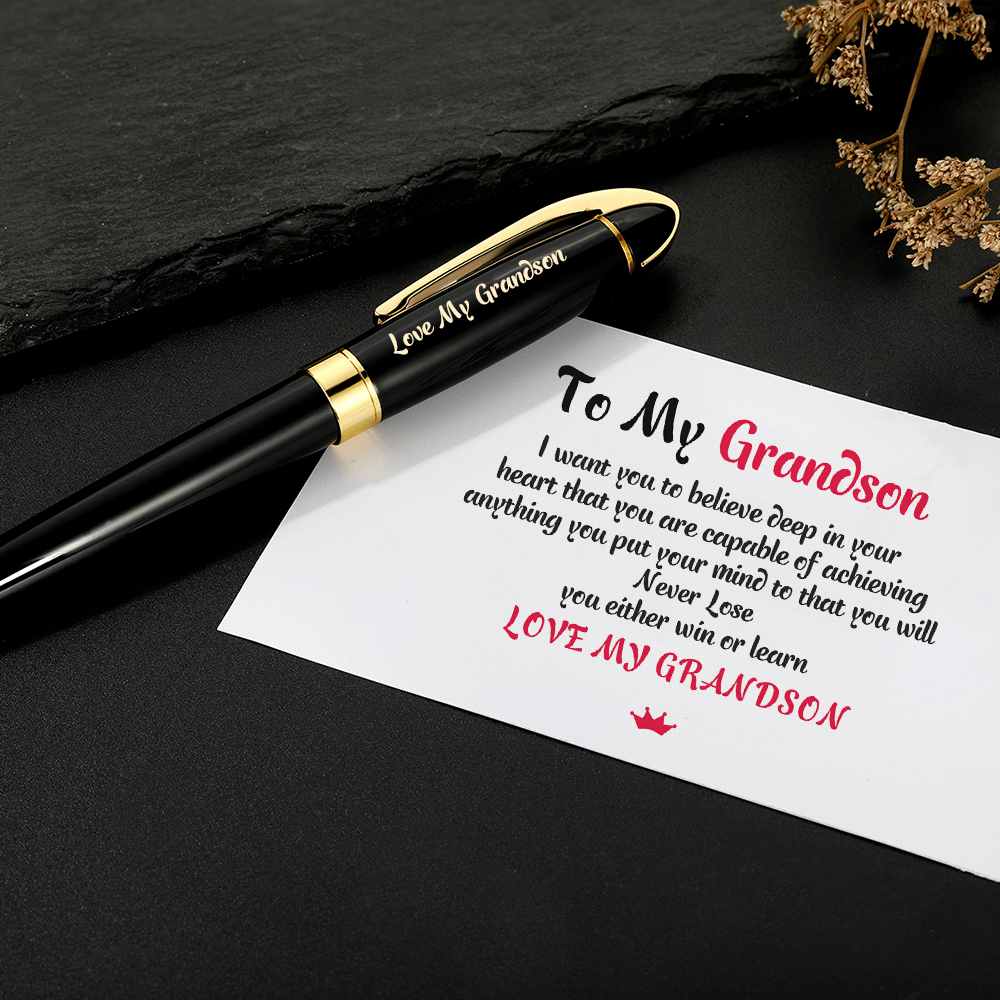 Love My Grandson
To My Grandson
I want you to believe deep in your
heart that you are capable of achieving
anything you put your mind to that you will
Never Lose
you either win or learn
LOVE MY GRANDSON